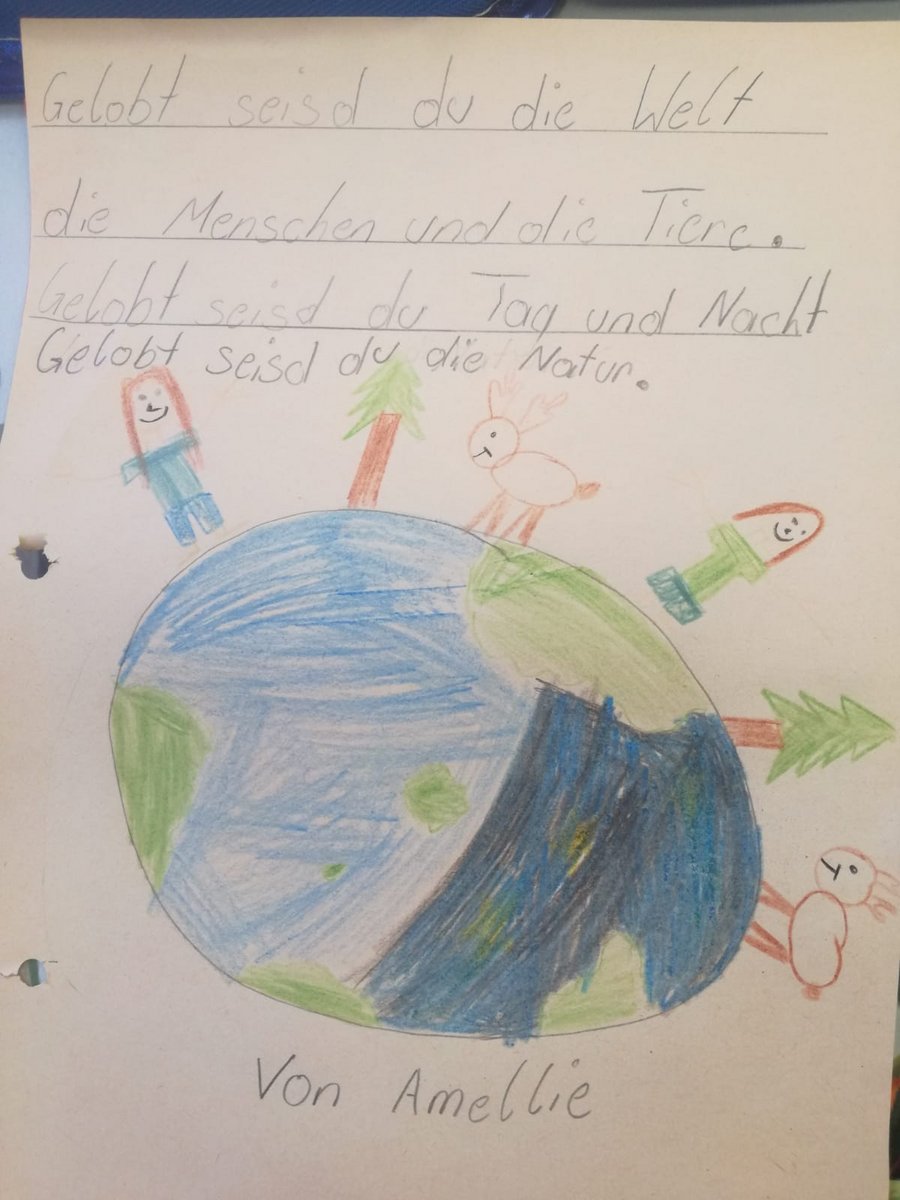 Gelobt seisd du die Welt
die Menschen und die Tiere.
Gelobt seisd du Tag und Nacht
Gelobt seisd du die Natur.
Von Amellie